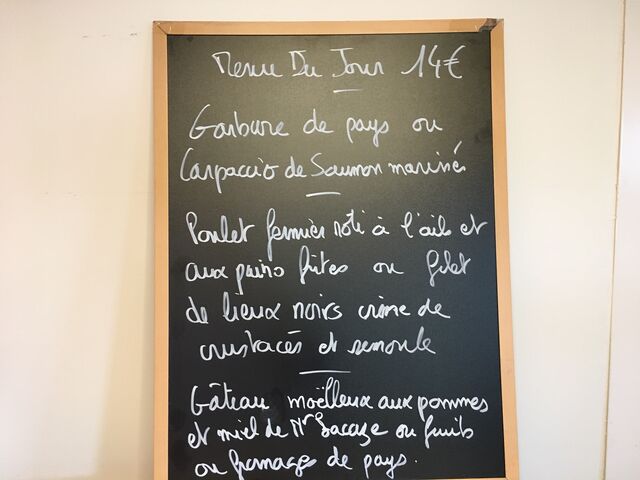 Menu Du Jour 14€
Garbure de pays ou
Carpaccio de Saumon marinés
Poulet fermier rôti à l'ails et
aux pains frites ou filet
de lieux noirs crème de
crustacés et semoule
Gâteau moëlleux aux pommes
et miel de Mr Lacaze ou fruits
ou fromages de pays.